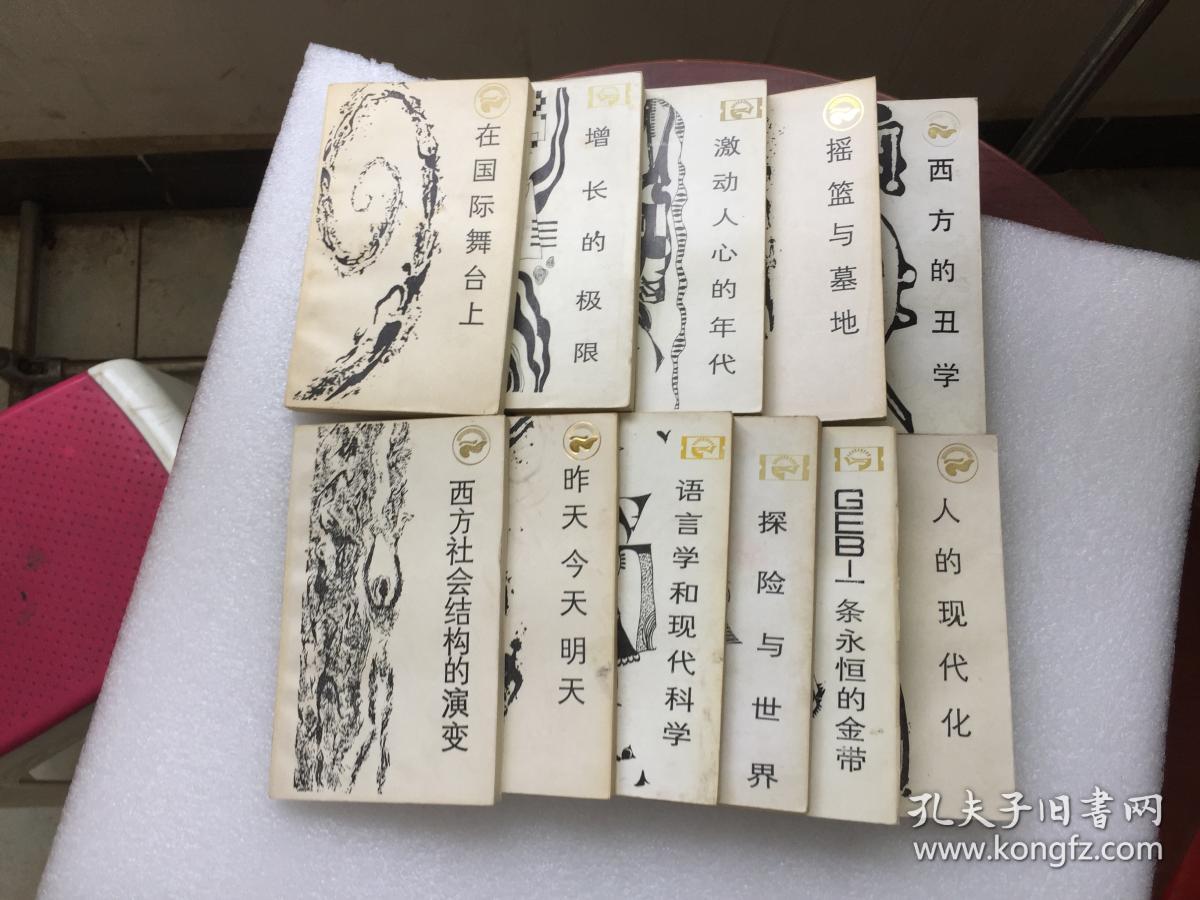 在国际舞台上
增长的极限
激动人心的年代
摇篮与墓地
西方的丑学
西方社会结构的演变
昨天今天明天
语言学和现代科学
探险与世界
GEB—一条永恒的金带
人的现代化
孔夫子旧书网
www.kongfz.com